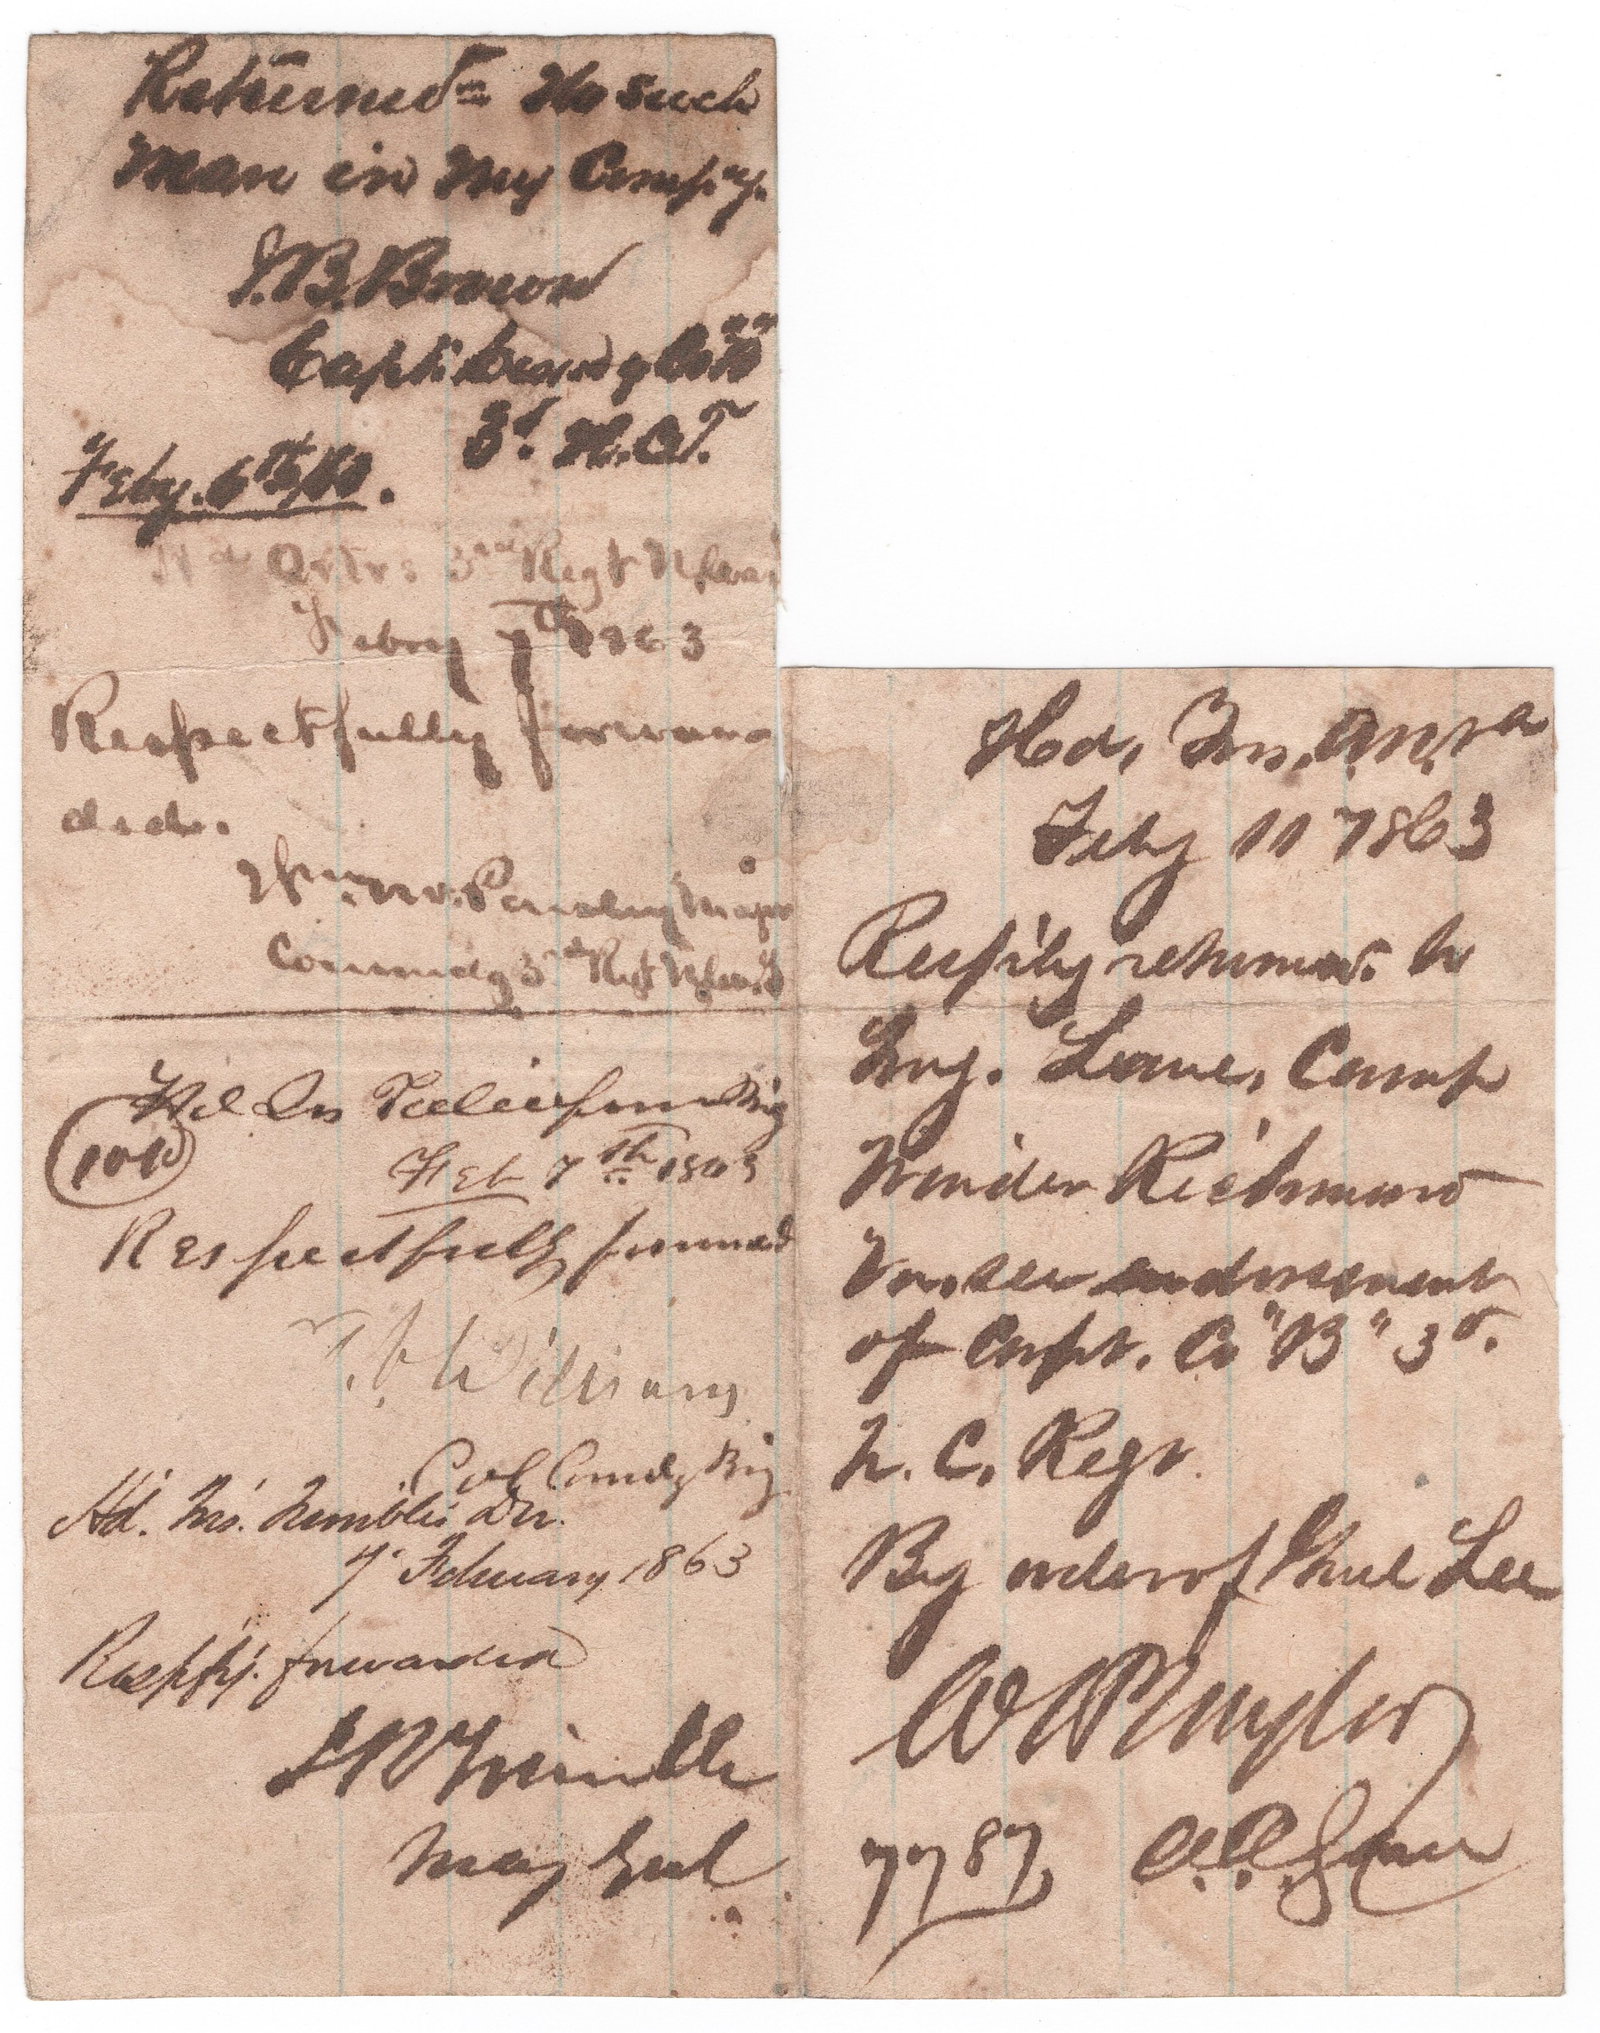 Returned – No such
man in my Comp'y.
J. B. Brown
Capt. Comdg Co "B"
3d. N.C.T.
Feby. 6th/63.
Hd Qrtrs 3rd Regt N Car
Febry 7th 1863
Respectfully forwar
ded.
Wm. M. Parsley Major
Commdg 3rd Regt N Car. T
Hd Qrs Taliaferro Brig
Feb 7th 1863
Respectfully forward
T. V. Williams
Col Comdg Brig
Hd. Qrs. Trimbles Div.
7 February 1863
Respfy. forwarded
I R Trimble
Maj Genl
Hd, Qrs, A. N. Va
Feby 11 1863
Respfly returned to
Surg. Lane, Camp
Winder Richmond
Va, see endorsement
of Capt. Co "B" 3d.
N. C. Regt.
By order of Genl Lee
W H Taylor
A. A. Genl
7787